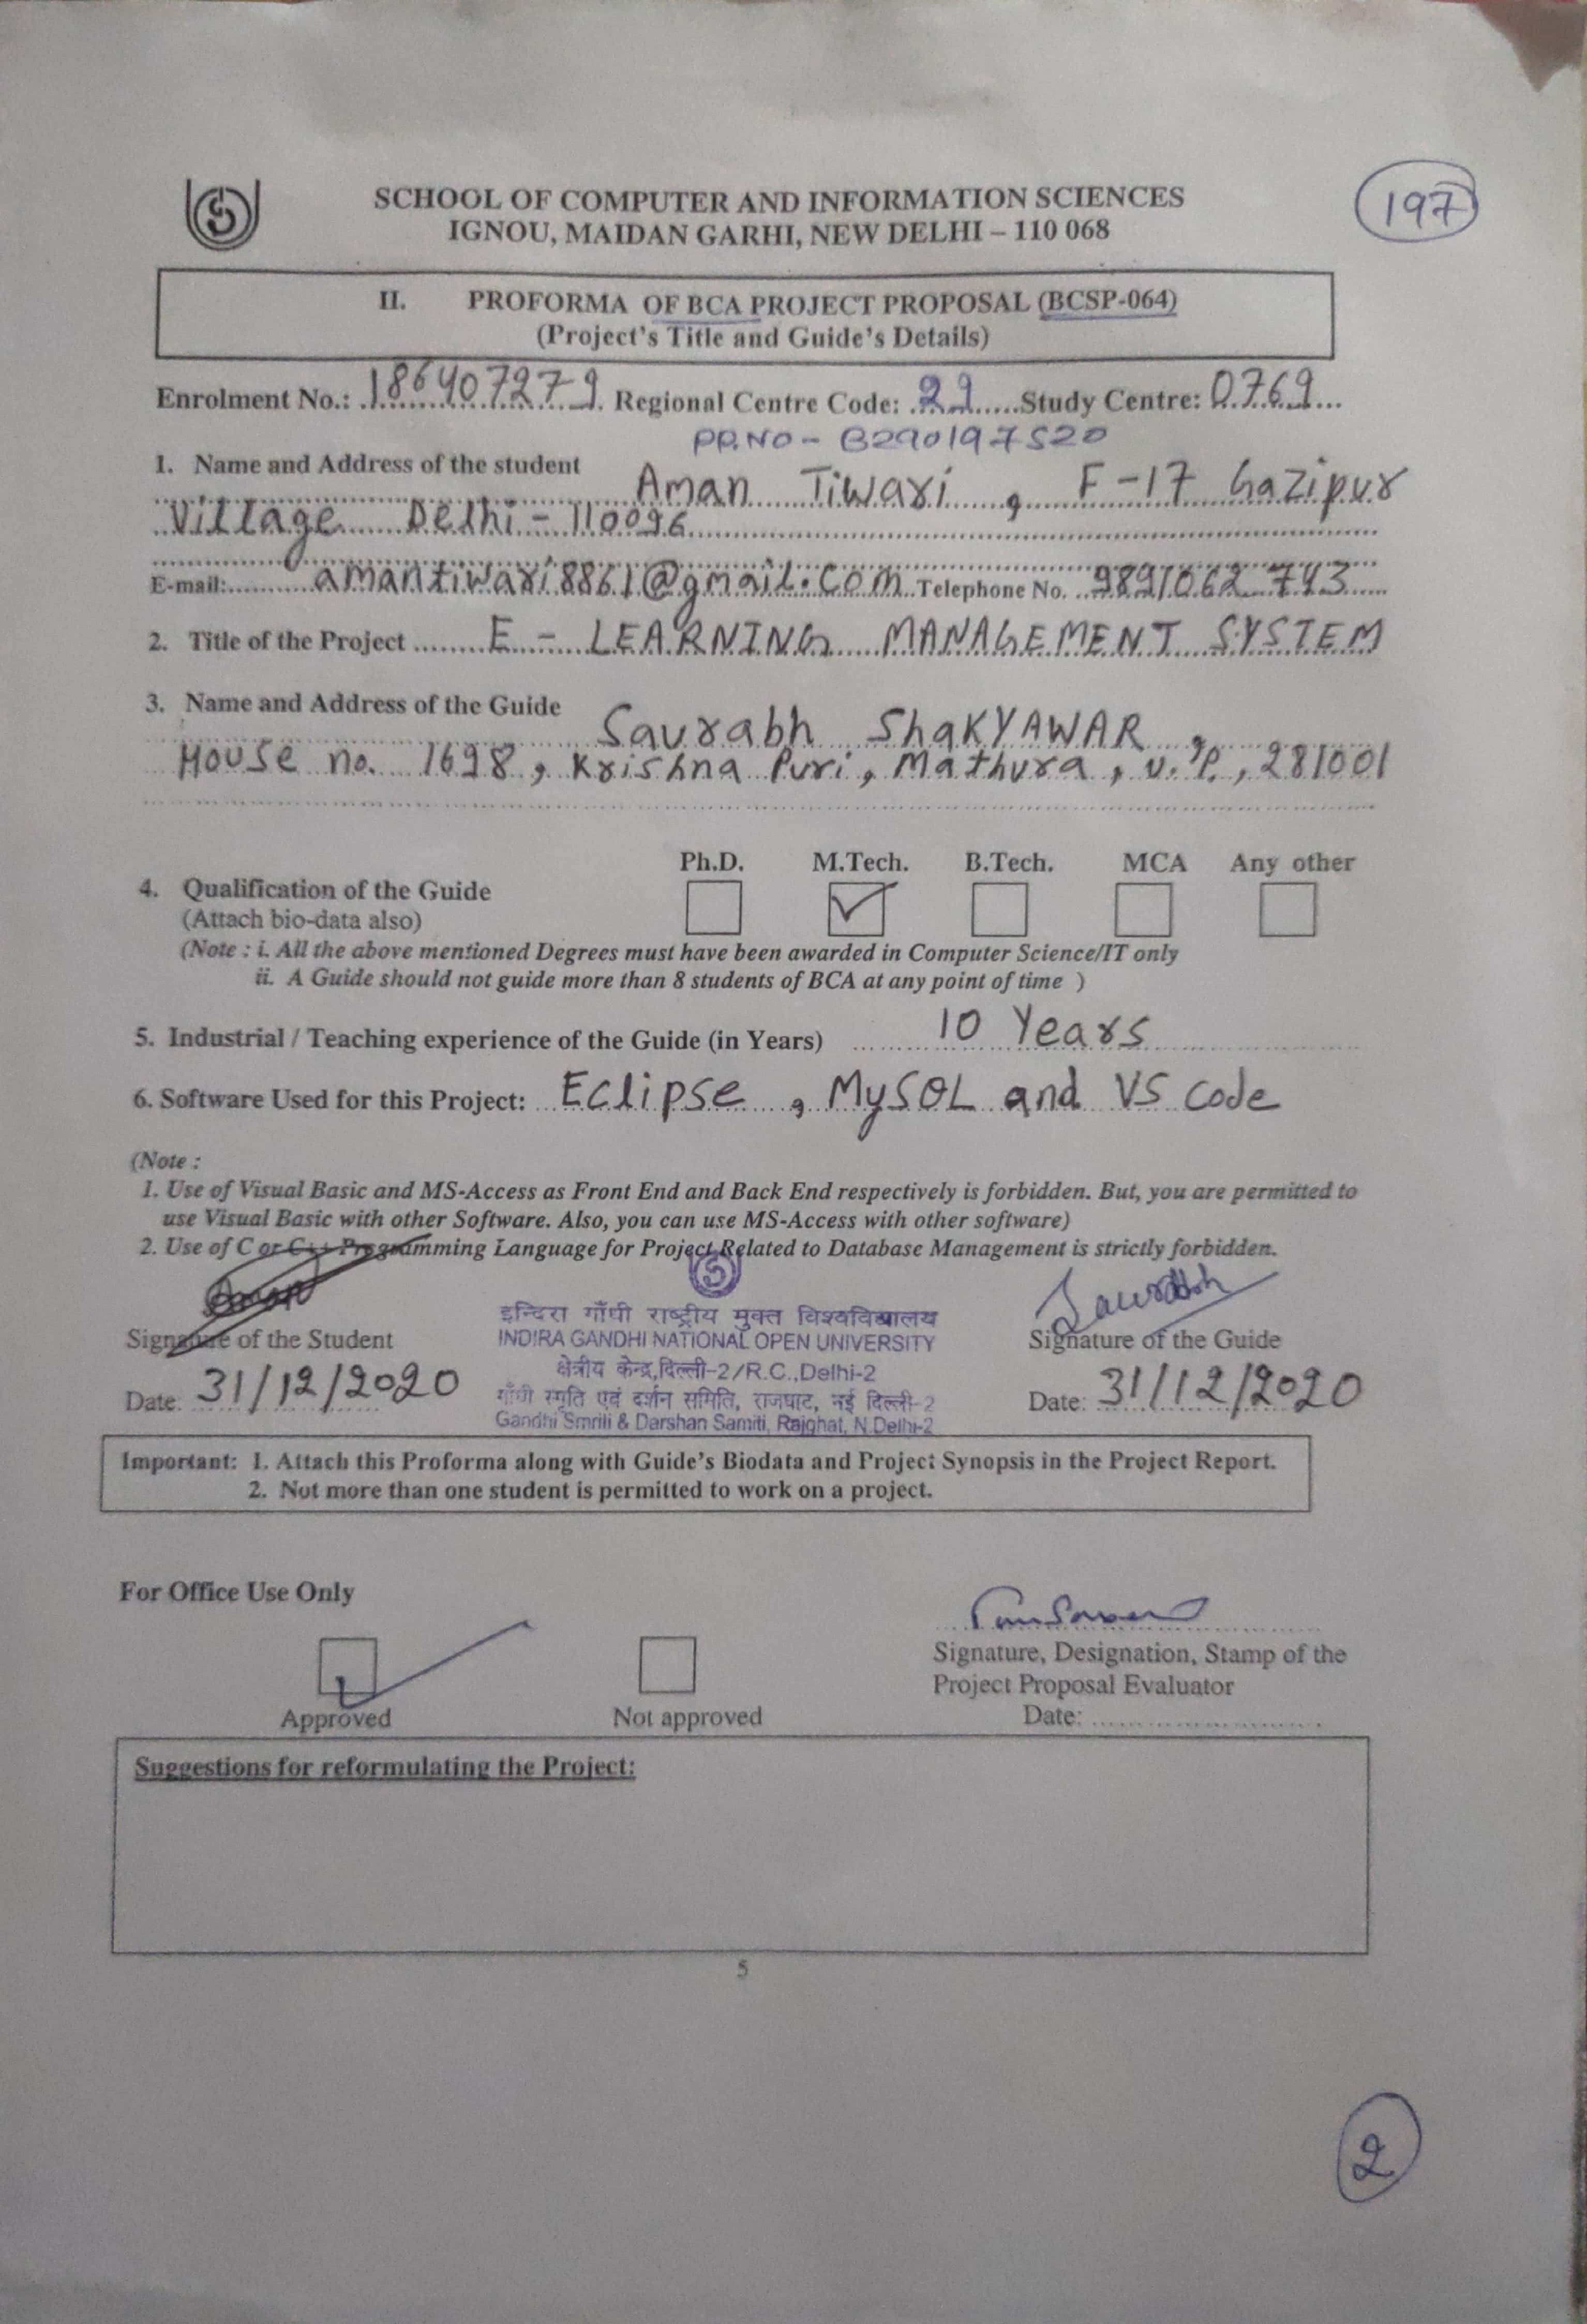 SCHOOL OF COMPUTER AND INFORMATION SCIENCES
197
IGNOU, MAIDAN GARHI, NEW DELHI – 110 068
II. PROFORMA OF BCA PROJECT PROPOSAL (BCSP-064)
(Project's Title and Guide's Details)
Enrolment No.: 186407279 Regional Centre Code: 29 Study Centre: 0769
PP.NO - B290197520
1. Name and Address of the student
Aman Tiwari, F-17 Gazipur
Village Delhi - 110096
E-mail: amantiwari8861@gmail.com Telephone No. 9891062743
2. Title of the Project E - LEARNING MANAGEMENT SYSTEM
3. Name and Address of the Guide
Saurabh ShaKYAWAR,
House no. 1698, Krishna Puri, Mathura, U.P., 281001
Ph.D. M.Tech. B.Tech. MCA Any other
4. Qualification of the Guide
(Attach bio-data also)
(Note : i. All the above mentioned Degrees must have been awarded in Computer Science/IT only
ii. A Guide should not guide more than 8 students of BCA at any point of time )
5. Industrial / Teaching experience of the Guide (in Years) 10 Years
6. Software Used for this Project: Eclipse, MySQL and VS Code
(Note :
1. Use of Visual Basic and MS-Access as Front End and Back End respectively is forbidden. But, you are permitted to
use Visual Basic with other Software. Also, you can use MS-Access with other software)
2. Use of C or C++ Programming Language for Project Related to Database Management is strictly forbidden.
Aman
Saurabh
इन्दिरा गाँधी राष्ट्रीय मुक्त विश्वविद्यालय
INDIRA GANDHI NATIONAL OPEN UNIVERSITY
क्षेत्रीय केन्द्र,दिल्ली-2/R.C.,Delhi-2
गाँधी स्मृति एवं दर्शन समिति, राजघाट, नई दिल्ली-2
Gandhi Smriti & Darshan Samiti, Rajghat, N.Delhi-2
Signature of the Student
Date: 31/12/2020
Signature of the Guide
Date: 31/12/2020
Important: 1. Attach this Proforma along with Guide's Biodata and Project Synopsis in the Project Report.
2. Not more than one student is permitted to work on a project.
For Office Use Only
Approved
Not approved
Signature, Designation, Stamp of the
Project Proposal Evaluator
Date:
Suggestions for reformulating the Project:
5
2